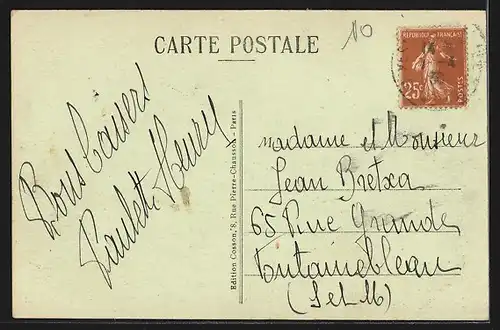 10
CARTE POSTALE
REPUBLIQUE FRANÇAISE
25c
POSTES
Bons baisers
Paulette Henry
Edition Cosson, 8, Rue Pierre-Chausson - Paris
Madame et Monsieur
Jean Bretxa
65 Rue Grande
Fontainebleau
(S et M)